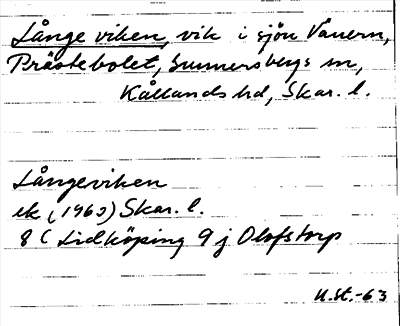 Långe viken, vik i sjön Vänern,
Prästebolet, Sunnersbergs sn,
Kållands hd, Skar. l.
Långeviken
ek (1963) Skar. l.
8 C Lidköping 9 j Olofstorp
U.St.-63